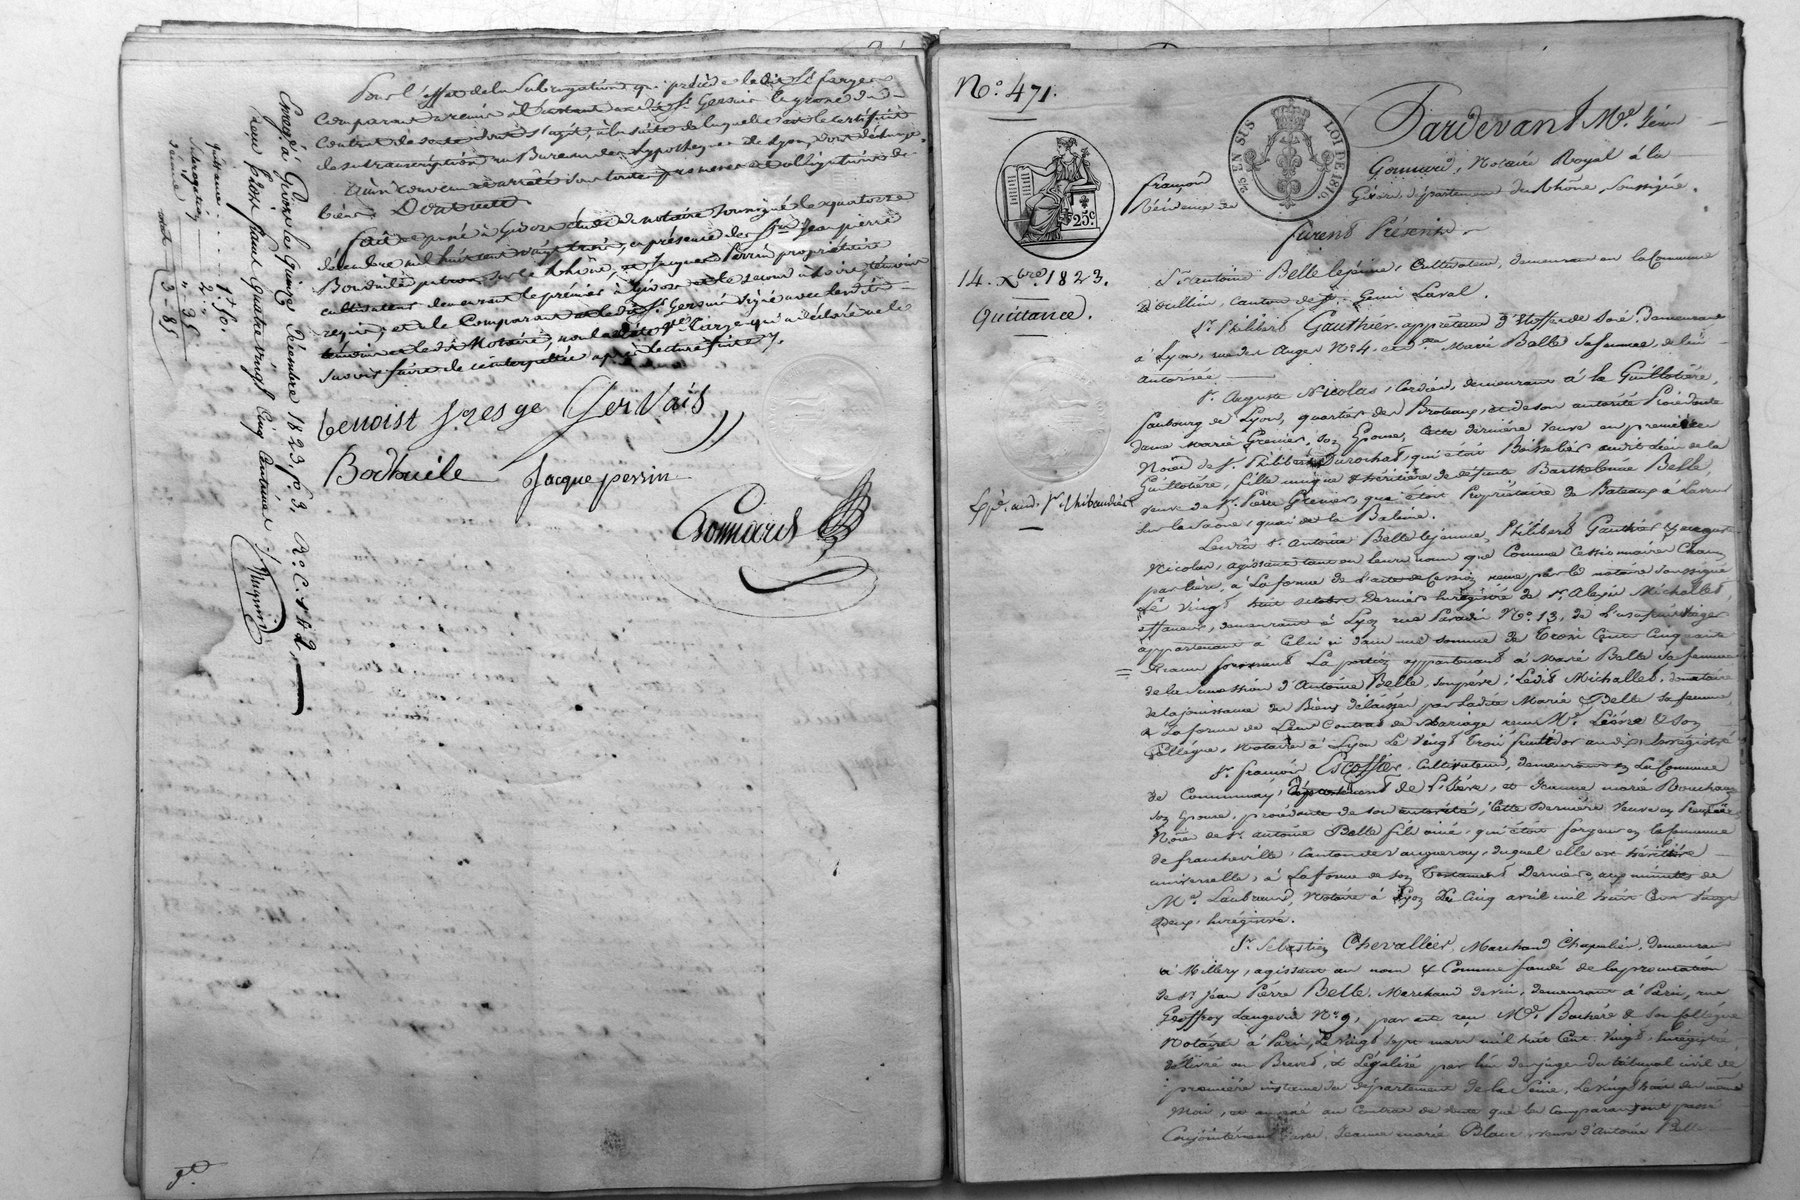 Pour l'effet de la subrogation qui précède ladite Dlle farge
Comparant a remis à l'instant audit Sr Gervais la grosse du
Contrat de vente dont s'agit, à la suite de laquelle est le certificat
de sa transcription au Bureau des hypothèques de Lyon, dont décharge.
Ainsi convenu et arrêté sous toutes promesses et obligations de
biens. Dont acte
fait et passé à Givors étude de notaire soussigné le quatorze
décembre mil huit cent vingt trois, en présence des Srs Jean pierre
Bodouile patron sur le Rhône, et Jacques Perrin propriétaire
cultivateur demeurant le premier à Givors et le second à Loire, témoins
requis, et le Comparant et ledit Sr Gervais signé avec lesdits
témoins et ledit Notaire, non ladite Dlle farge qui a déclaré ne le
savoir faire de ce interpellée après lecture faite.
benoist Gervais
Jacque perrin
Enregé à Givors le quinze décembre 1823, fo 3, Ro C. 1 & 2.
reçu trois francs quatre vingt cinq centimes
quittance 1. 50.
Subrogation 2. "
dixième " - 35
3 - 85
No. 471.
25c.
LOI DE 1816.
14. Xbre 1823.
Quittance.
Pardevant Me. Jean
françois Gonnard, Notaire Royal à la
Résidence de Givors, département du Rhône, soussigné.
furent Présents
Sr Antoine Belle lejeune, Cultivateur, demeurant en la Commune
d'oullin, canton de St. Genis Laval.
Sr. Philibert Gauthier, apprêteur d'étoffes de soie, demeurant
à Lyon, rue des Anges No 4, et dme Marie Belle sa femme, de lui
autorisée.
Sr. Auguste Nicolas, Cordier, demeurant à la Guillotière,
faubourg de Lyon, quartier des Broteaux, et de son autorité Procédante
dame Marie Grenier, son Epouse, Cette dernière veuve en premières
Noces de Sr. Philibert Durochat, qui était Boisselier audit lieu de la
Guillotière, fille unique & héritière de défunte Barthelemie Belle,
veuve de Sr. Pierre Grenier, qui étoit Propriétaire de Bateaux à Laver
sur la Saone, quai de la Baleine.
Lesdits Sr. Antoine Belle lejeune, Philibert Gauthier & auguste
Nicolas, agissant tant en leurs noms que Comme Cessionnaires Chacun
par tiers, à la forme de l'acte de Cession reçue par le notaire soussigné
Le vingt huit octobre Dernier Enregistré de Sr. Alexis Michallet,
affaneur, demeurant à Lyon rue Paradis No. 13, de l'usufruit viager
appartenant à Celui ci dans une somme de trois Cent Cinquante
francs formant la portion appartenant à Marie Belle sa femme
de la succession d'Antoine Belle, son père; Ledit Michallet, donataire
de la jouissance des Biens délaissés par ladite Marie Belle sa femme,
à la forme de leur Contrat de Mariage reçu Me. Lièvre & son
Collègue, Notaires à Lyon le vingt trois fructidor an dix, Enregistré
Sr. françois Escoffier, Cultivateur, demeurant en la Commune
de Communay, département de l'Isère, et Jeanne marie Bouchard
son épouse, procédante de son autorité, Cette Dernière Veuve en Premières
Noces de Sr. antoine Belle fils ainé, qui étoit forgeur en la Commune
de francheville, canton de Vaugneray, duquel elle est héritière
universelle, à la forme de son testament Dernier, aux minutes de
Me. Laubreaud, Notaire à Lyon du Cinq avril mil huit Cent vingt
Deux, Enregistré.
Sr. Sébastien Chevallier, Marchand Chapelier, demeurant
à Millery, agissant au nom & Comme fondé de la procuration
de Sr. Jean Pierre Belle, Marchand de vin, demeurant à Paris, rue
Geoffroy Langevin No 9, par acte reçu Me. Bacheré & son Collègue
Notaires à Paris, Le vingt sept mars mil huit Cent vingt, Enregistré,
délivré en Brevet, & Légalisé par l'un des juges du tribunal civil de
première instance du département de la Seine, le vingt huit du même
Mois, et annexé au Contrat de vente que les comparans ont passé
Conjointement avec Jeanne marie Blanc, veuve d'Antoine Belle